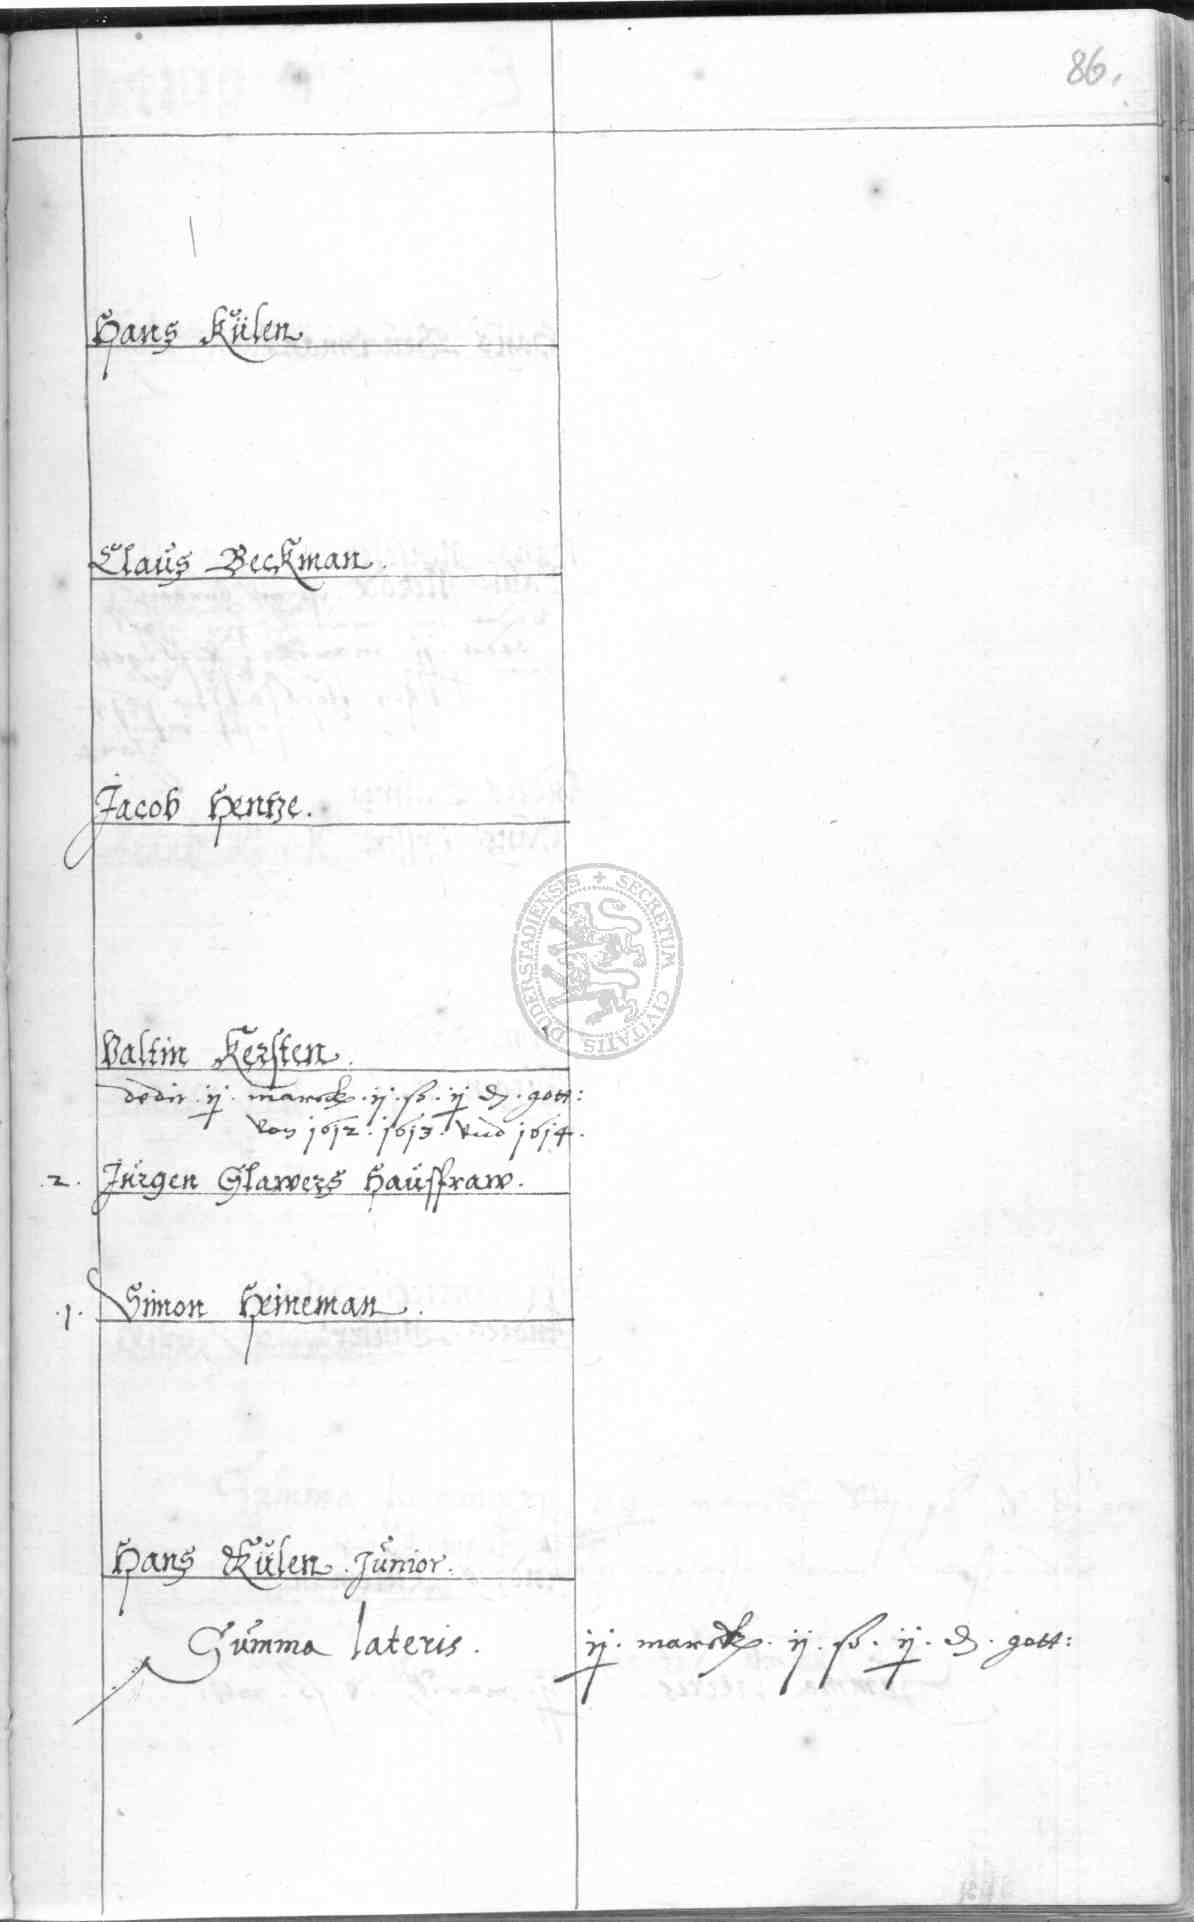 86.
Hans Külen
Claus Beckman.
Jacob Hentze.
Valtin Kersten.
dedit ij. marck. ij. ß. ij ₰. gott:
von 1612. 1613. vnd 1614.
.2. Jürgen Glawers Haussfraw.
.1. Simon Heineman.
Hans Külen. Junior.
Summa lateris. ij. marck. ij. ß. ij. ₰. gott:
SECRETUM CIVITATIS DUDERSTADIENSIS